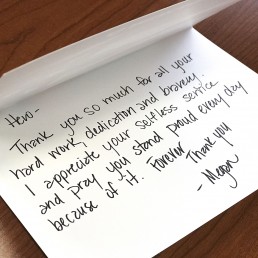 Hero-
Thank you so much for all your
hard work, dedication and bravery.
I appreciate your selfless service
and pray you stand proud every day
because of it. Forever Thank you
- Megan